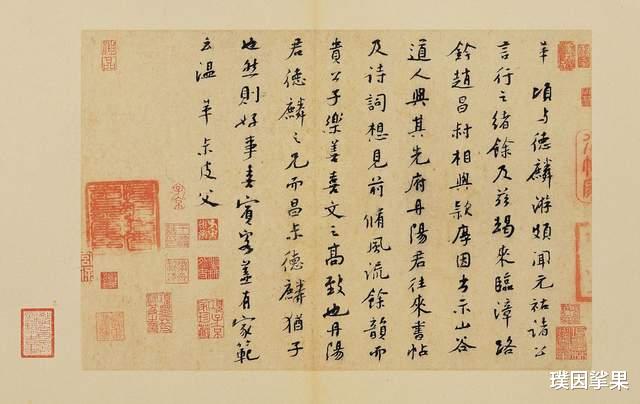 革 頃与德麟游頗聞元祐諸公
言行之緒餘及兹朅来臨漳路
鈐趙昌尗相與欵厚因出示山谷
道人與其先府丹陽君往来書帖
及詩詞想見前脩風流餘韻而
貴公子樂善喜文之髙致也丹陽
君德麟之兄而昌尗德麟猶子
也然則好事喜賓客盖有家範
云温革尗皮父
璞因挲果